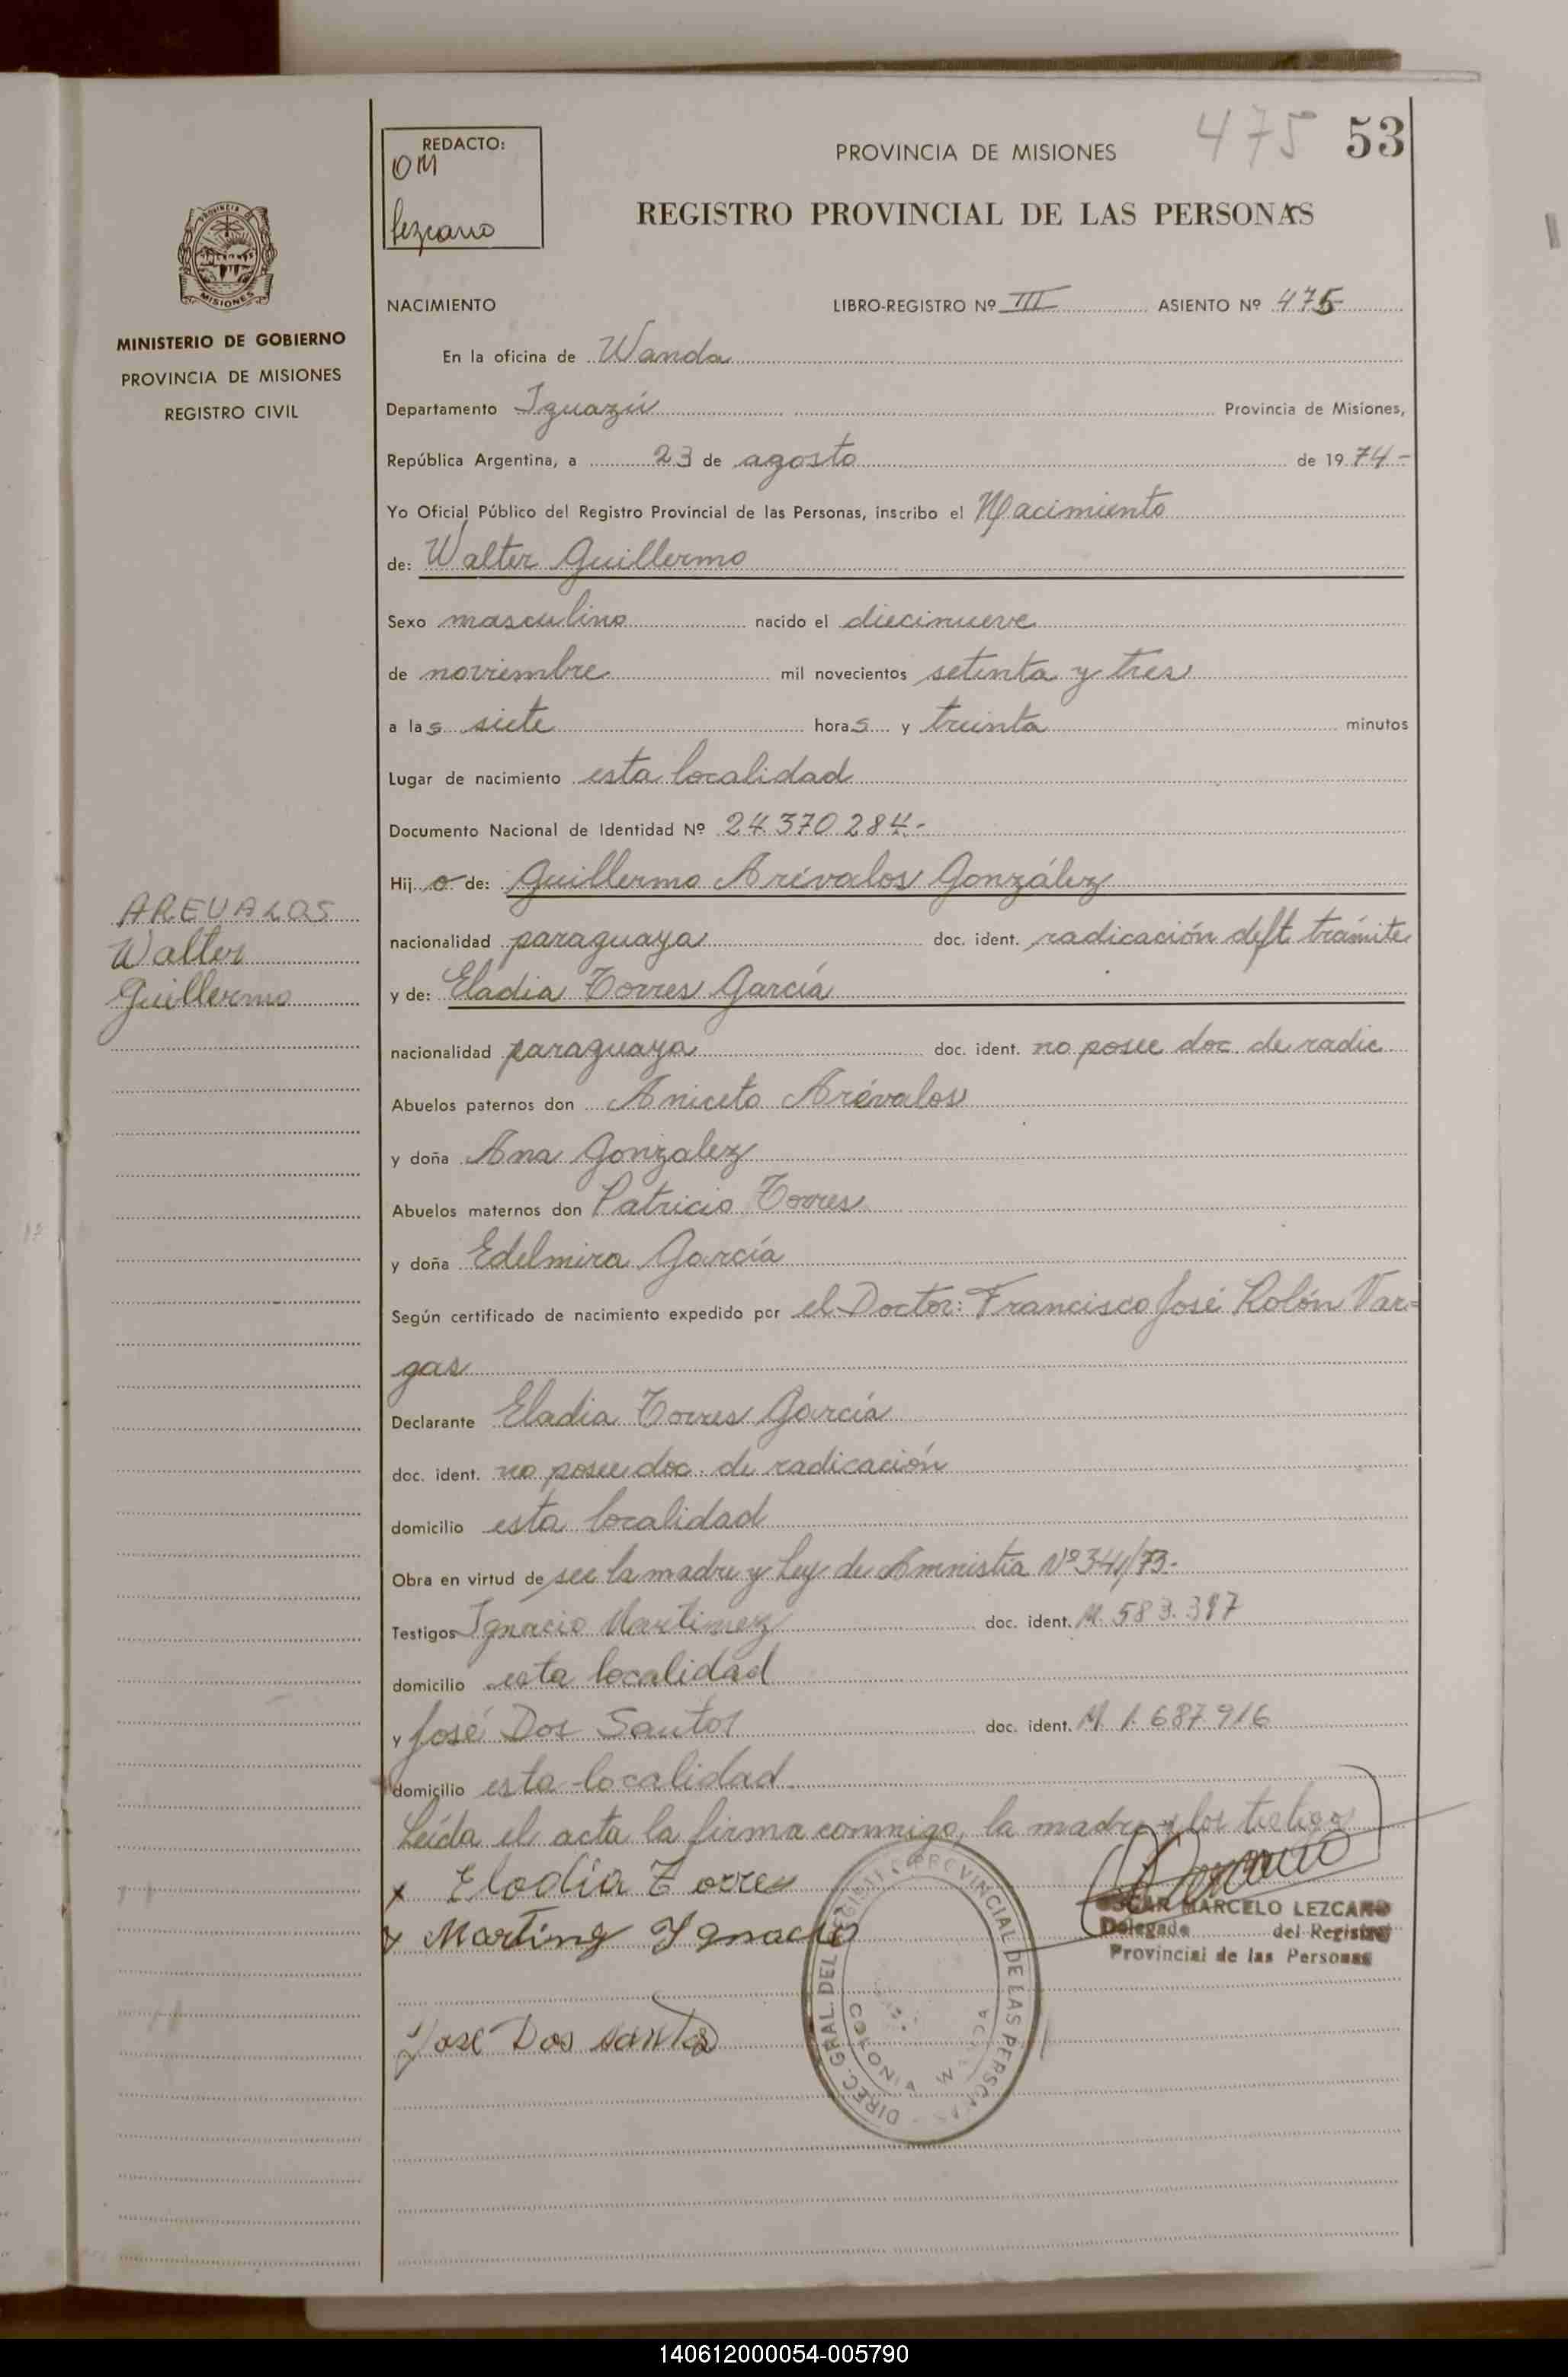 475 53
REDACTO:
OM
Lezcano
PROVINCIA DE MISIONES
REGISTRO PROVINCIAL DE LAS PERSONAS
PROVINCIA
MISIONES
MINISTERIO DE GOBIERNO
PROVINCIA DE MISIONES
REGISTRO CIVIL
NACIMIENTO LIBRO-REGISTRO Nº III ASIENTO Nº 475
En la oficina de Wanda
Departamento Iguazú Provincia de Misiones,
República Argentina, a 23 de agosto de 1974-
Yo Oficial Público del Registro Provincial de las Personas, inscribo el Nacimiento
de: Walter Guillermo
Sexo masculino nacido el diecinueve
de noviembre mil novecientos setenta y tres
a las siete horas y treinta minutos
Lugar de nacimiento esta localidad
Documento Nacional de Identidad Nº 24.370.284.-
Hijo de: Guillermo Arévalos González
nacionalidad paraguaya doc. ident. radicación deft. trámite
y de: Eladia Torres García
nacionalidad paraguaya doc. ident. no posee doc de radic
Abuelos paternos don Aniceto Arévalos
y doña Ana Gonzalez
Abuelos maternos don Patricio Torres
y doña Edelmira García
Según certificado de nacimiento expedido por el Doctor: Francisco José Rolón Var=
gas
Declarante Eladia Torres García
doc. ident. no posee doc. de radicación
domicilio esta localidad
Obra en virtud de ser la madre y Ley de Amnistía Nº 341/73-
Testigos Ignacio Martinez doc. ident. M. 583.397
domicilio esta localidad
y José Dos Santos doc. ident. M 1.687.916
domicilio esta localidad
Leída el acta la firma conmigo, la madre y los testigos
x Elodia Torres
x Martinz Ygnacio
Jose Dos santos
AREVALOS
Walter
Guillermo
DIREC. GRAL. DEL REGISTRO PROVINCIAL DE LAS PERSONAS
COLONIA
OSCAR MARCELO LEZCANO
Delegado del Registro
Provincial de las Personas
140612000054-005790